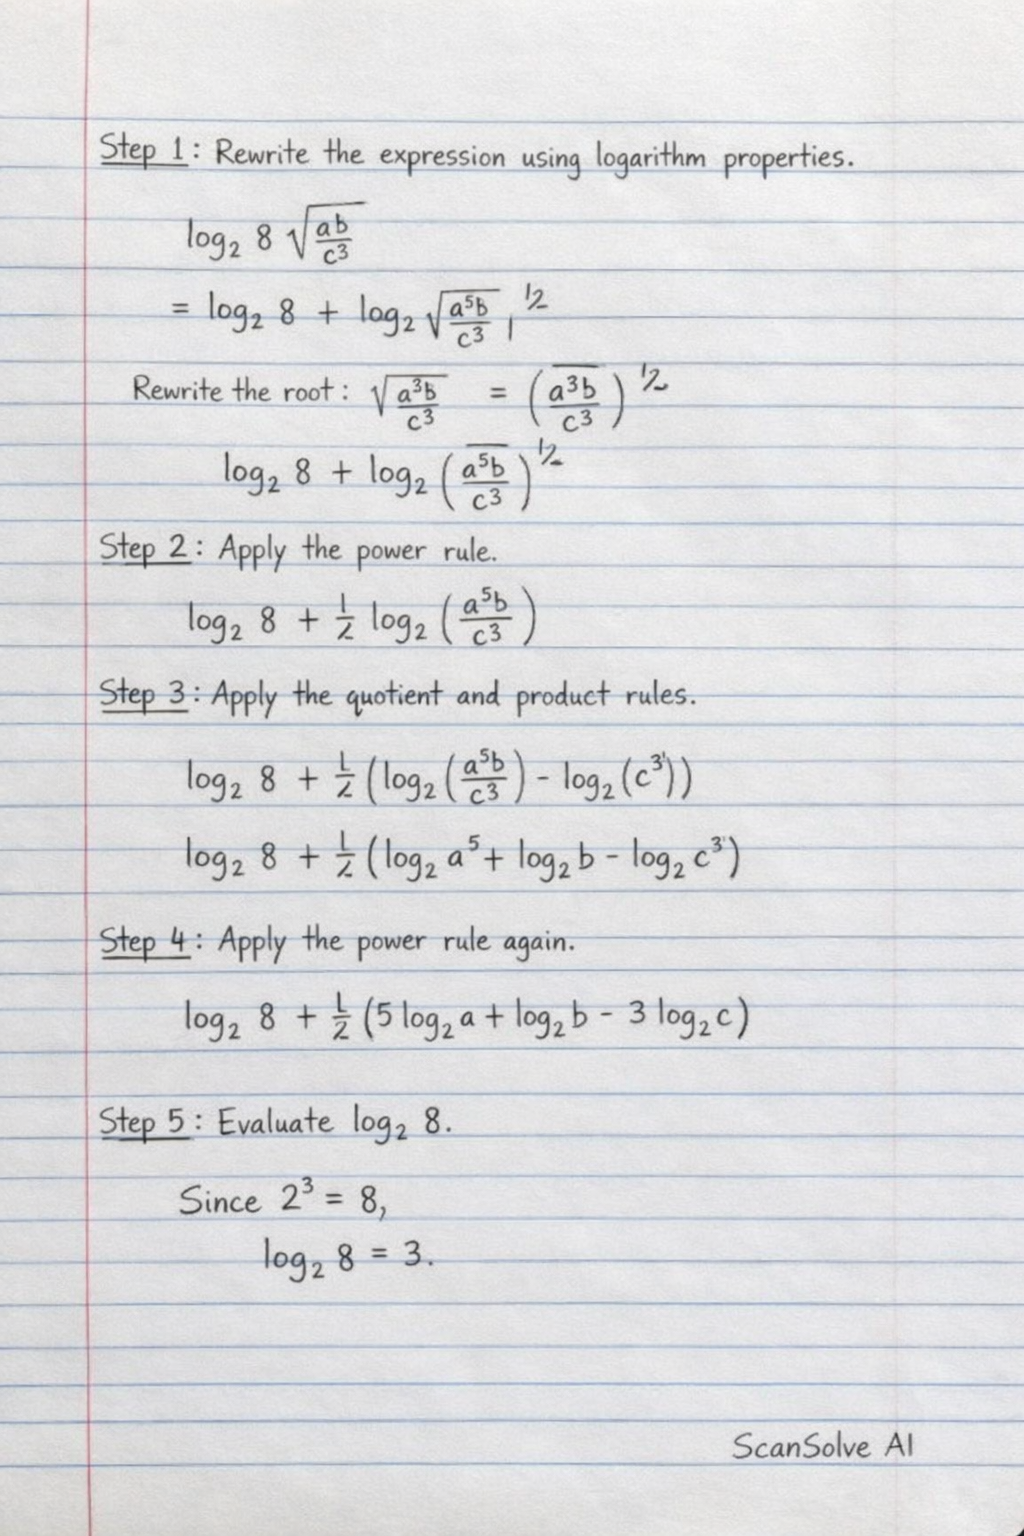 Step 1: Rewrite the expression using logarithm properties.
log₂ 8 √(ab/c³)
= log₂ 8 + log₂ √(a⁵b/c³) ^1/2
Rewrite the root: √(a³b/c³) = (a³b/c³)^1/2
log₂ 8 + log₂ (a⁵b/c³)^1/2
Step 2: Apply the power rule.
log₂ 8 + 1/2 log₂ (a⁵b/c³)
Step 3: Apply the quotient and product rules.
log₂ 8 + 1/2 (log₂ (a⁵b/c³) - log₂ (c³))
log₂ 8 + 1/2 (log₂ a⁵ + log₂ b - log₂ c³)
Step 4: Apply the power rule again.
log₂ 8 + 1/2 (5 log₂ a + log₂ b - 3 log₂ c)
Step 5: Evaluate log₂ 8.
Since 2³ = 8,
log₂ 8 = 3.
ScanSolve AI